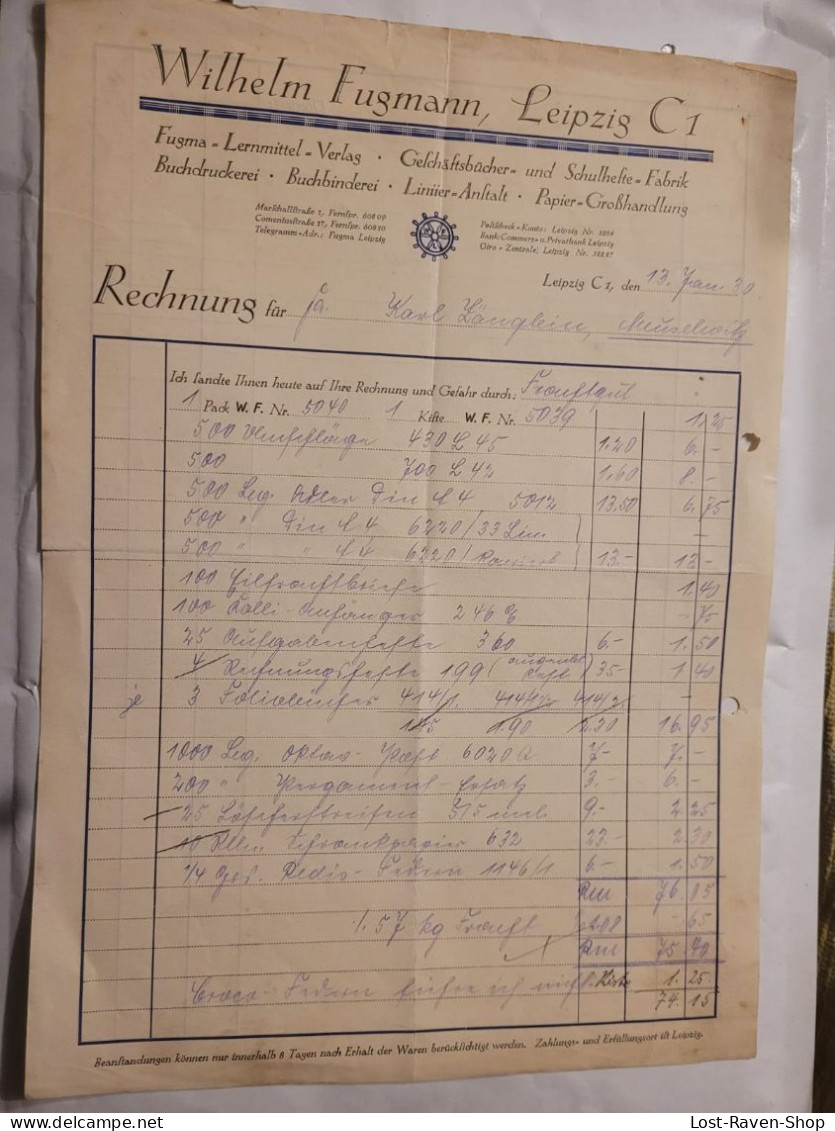 Wilhelm Fugmann, Leipzig C 1
Fugma-Lernmittel-Verlag · Geschäftsbücher- und Schulhefte-Fabrik
Buchdruckerei · Buchbinderei · Liniier-Anstalt · Papier-Großhandlung
Marschallstraße 2, Fernspr. 60809
Comeniusstraße 17, Fernspr. 60810
Telegramm-Adr.: Fugma Leipzig
Postscheck-Konto: Leipzig Nr.
Bank: Commerz- u. Privatbank Leipzig
Giro-Zentrale, Leipzig Nr.
Leipzig C 1, den 13. Jan. 30
Rechnung für Fa. Karl Länglein, Meuselwitz
Ich sandte Ihnen heute auf Ihre Rechnung und Gefahr durch: Frachtgut
1 Pack W. F. Nr. 5040 1 Kiste W. F. Nr. 5039 1.25
500 Umschläge 430 L 45 1.20 6.-
500 700 L 42 1.60 8.-
500 Leg. Adler Din A 4 5012 13.50 6.75
500 " Din A 4 6220/33 Lin. -
500 " " A 4 6220/ 13.- 13.-
100 Eilfrachtbriefe 1.40
100 Kolli-Anhänger 246 -.75
25 Aufgabenhefte 360 6.- 1.50
4 Rechnungshefte 199 35.- 1.40
je 3 414/1. 414/2. -
1.90 2.30 16.95
1000 Leg. Oktav-Post 6020 7.- 7.-
200 " Pergament-Ersatz 3.- 6.-
25 Löscherstreifen 515 9.- 2.25
10 Rllen Schrankpapier 632 23.- 2.30
1/4 Gos. Redis-Federn 1146/1 6.- 1.50
Rm 76.05
1.57 kg Fracht -.65
Rm 75.40
Federn führe ich nicht. Kiste 1.25
74.15
Beanstandungen können nur innerhalb 8 Tagen nach Erhalt der Waren berücksichtigt werden. Zahlungs- und Erfüllungsort ist Leipzig.
Lost-Raven-Shop